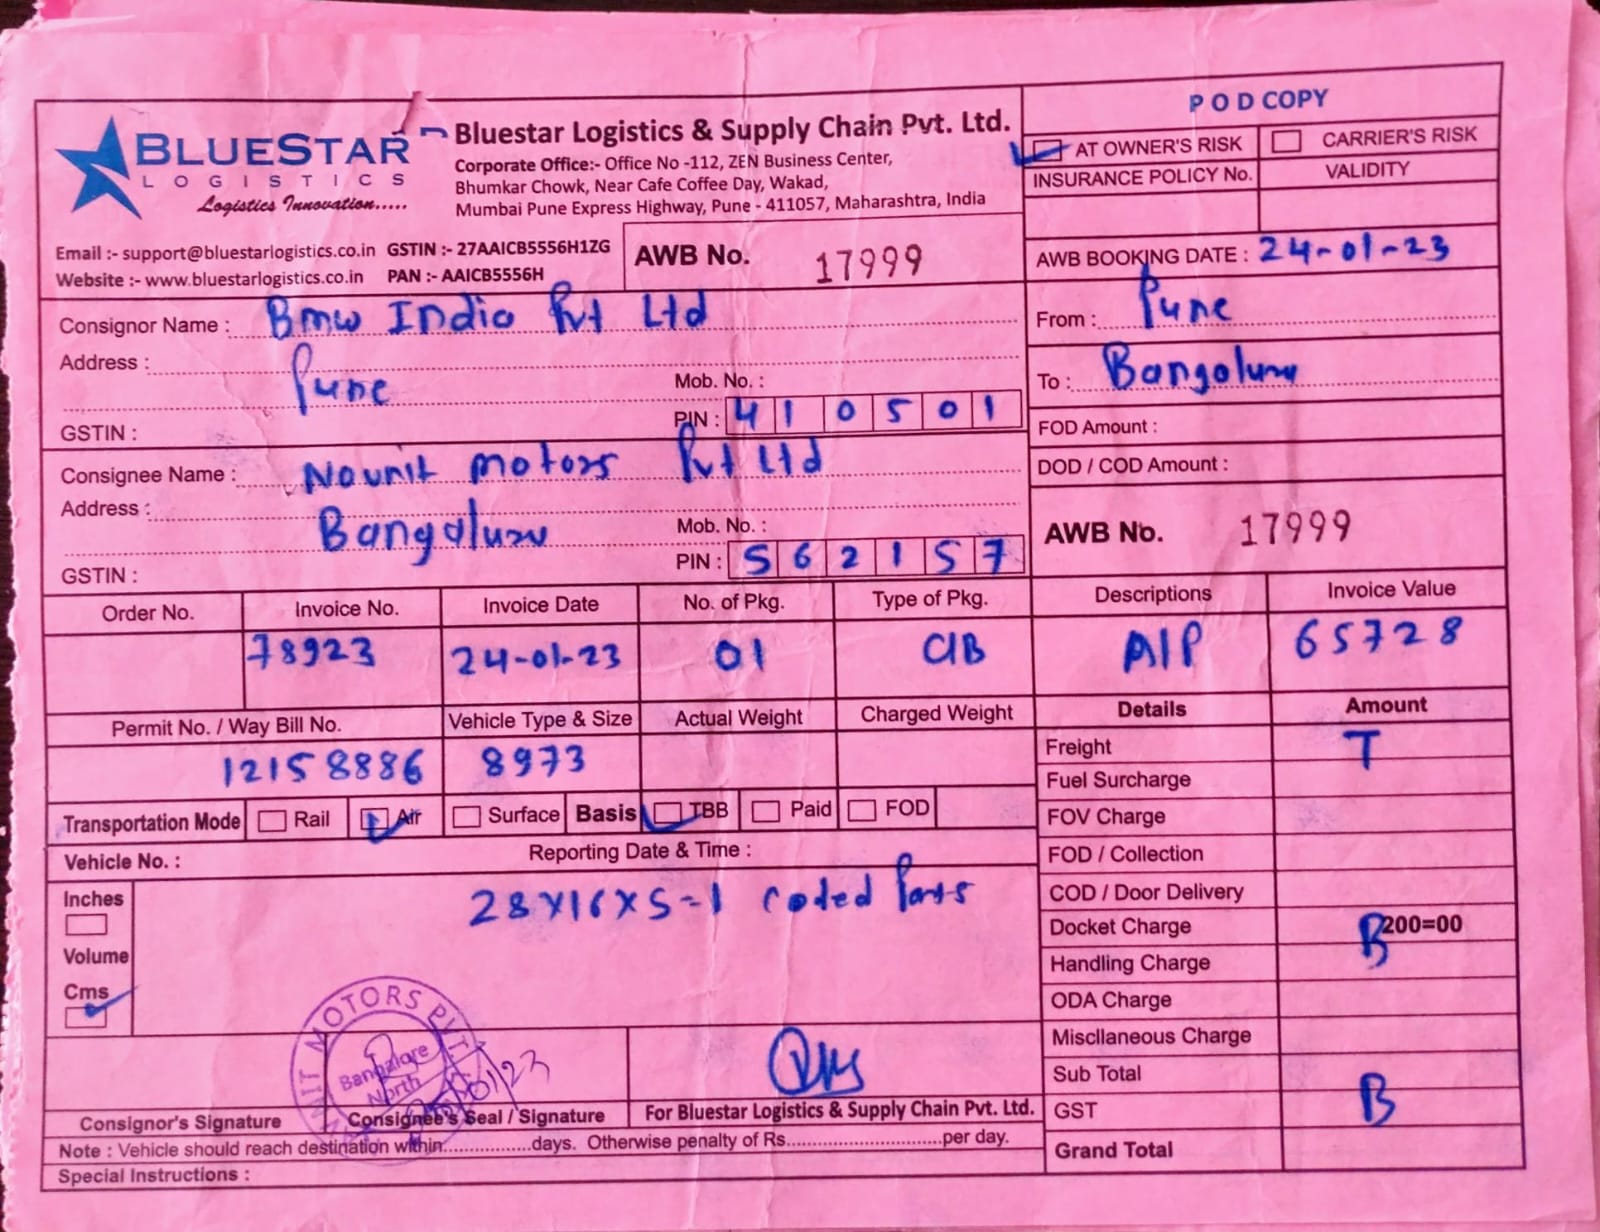 BLUESTAR
LOGISTICS
Logistics Innovation.....
Bluestar Logistics & Supply Chain Pvt. Ltd.
Corporate Office:- Office No -112, ZEN Business Center,
Bhumkar Chowk, Near Cafe Coffee Day, Wakad,
Mumbai Pune Express Highway, Pune - 411057, Maharashtra, India
Email :- support@bluestarlogistics.co.in GSTIN :- 27AAICB5556H1ZG
Website :- www.bluestarlogistics.co.in PAN :- AAICB5556H
AWB No. 17999
POD COPY
AT OWNER'S RISK CARRIER'S RISK
INSURANCE POLICY No. VALIDITY
AWB BOOKING DATE : 24-01-23
Consignor Name : Bmw India Pvt Ltd
Address : Pune
Mob. No. :
PIN : 410501
GSTIN :
From : Pune
To : Bangaluru
FOD Amount :
DOD / COD Amount :
Consignee Name : Navnit motors Pvt Ltd
Address : Bangaluru
Mob. No. :
PIN : 562157
GSTIN :
AWB No. 17999
Order No. Invoice No. Invoice Date No. of Pkg. Type of Pkg. Descriptions Invoice Value
78923 24-01-23 01 C/B A/P 65728
Permit No. / Way Bill No. Vehicle Type & Size Actual Weight Charged Weight
12158886 8973
Transportation Mode Rail Air Surface Basis TBB Paid FOD
Vehicle No. : Reporting Date & Time :
Inches
Volume
Cms
28x16x5-1 coded Parts
Details Amount
Freight T
Fuel Surcharge
FOV Charge
FOD / Collection
COD / Door Delivery
Docket Charge B 200=00
Handling Charge
ODA Charge
Miscllaneous Charge
Sub Total
GST B
Grand Total
NIT MOTORS PVT.
Bangalore
North
Consignor's Signature Consignee's Seal / Signature For Bluestar Logistics & Supply Chain Pvt. Ltd.
Note : Vehicle should reach destination within.................days. Otherwise penalty of Rs............................per day.
Special Instructions :